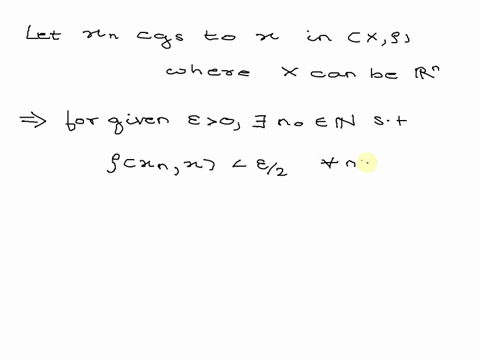 Let xn cgs to x in (X,ρ)
where X can be ℝⁿ
⇒ for given ε>0, ∃ n₀ ∈ ℕ s.t
ρ(xn, x) < ε/2 ∀ n